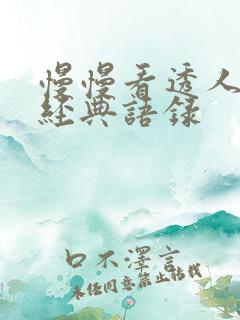 慢慢看透人
經典語录
口不澤言
未经同意禁止转载